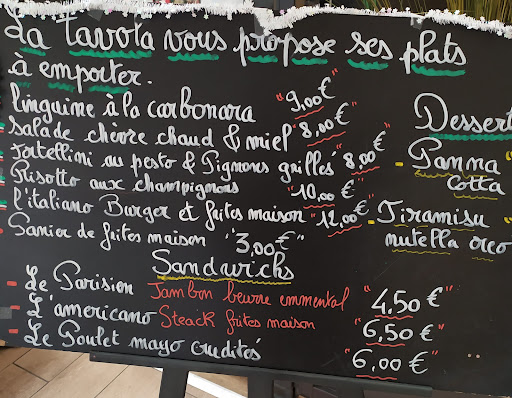 La Tavola vous propose ses plats
à emporter.
linguine à la carbonara "9,00€"
Salade chèvre chaud & miel "8,00€"
Tortellini au pesto & Pignons grillés "8,00€"
Risotto aux champignons "10,00€"
l'italiano Burger et frites maison "12,00€"
Panier de frites maison "3,00€"
Dessert
- Panna
Cotta
- Tiramisu
nutella oreo
Sandwichs
- Le Parisien Jambon beurre emmental "4,50€"
- L'americano Steack frites maison "6,50€"
- Le Poulet mayo crudités "6,00€"